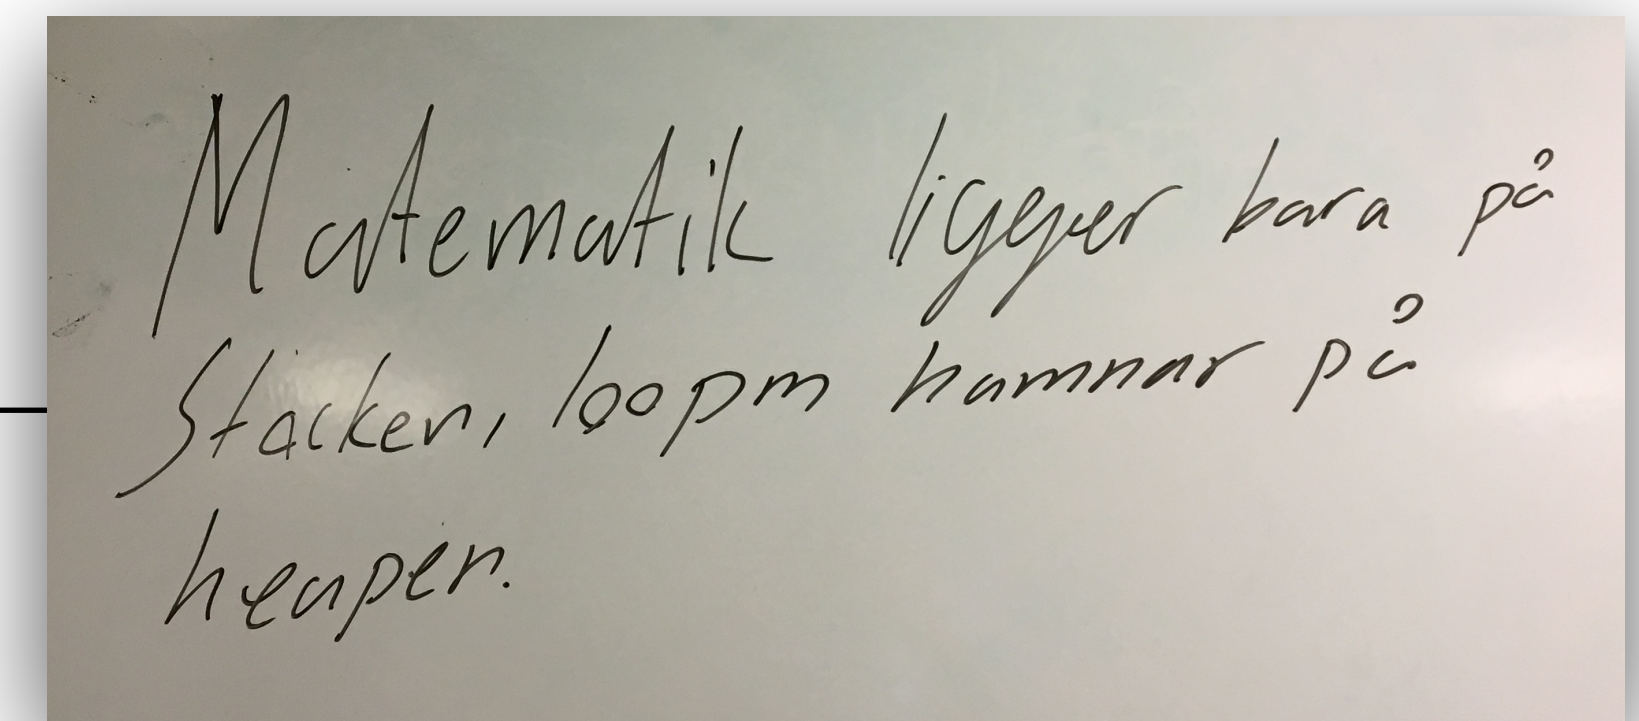 Matematik ligger bara på
stacken, loopm hamnar på
heapen.